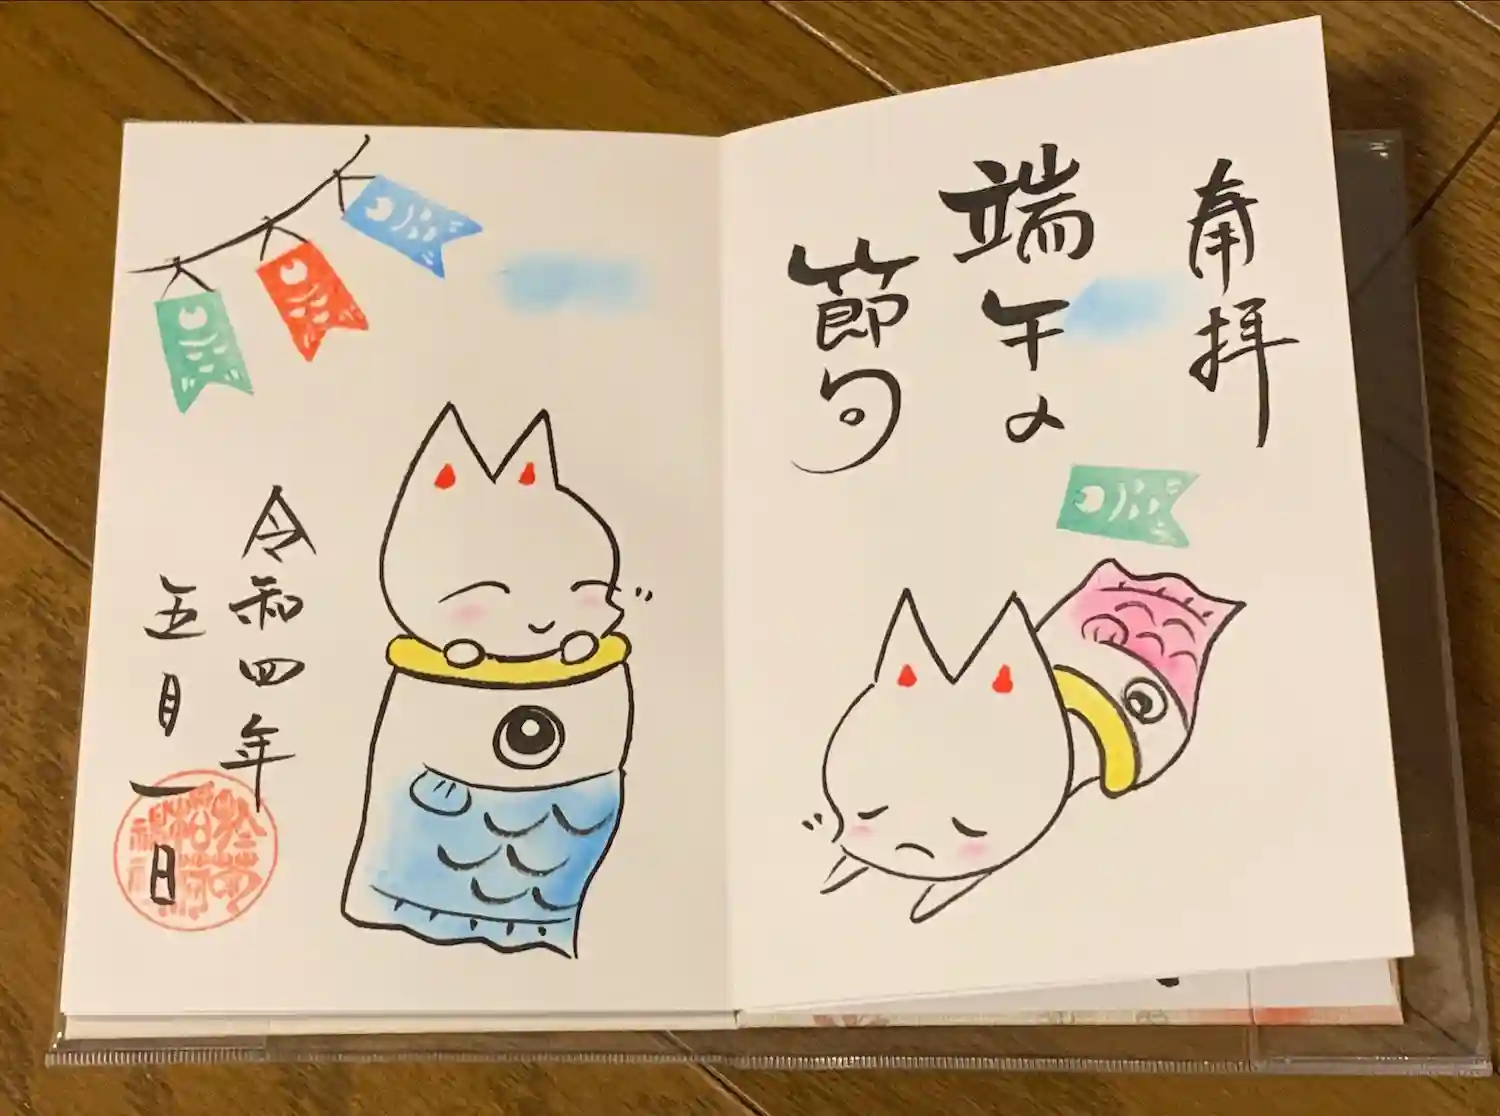 奉拝
端午の
節句
令和四年
五月一日